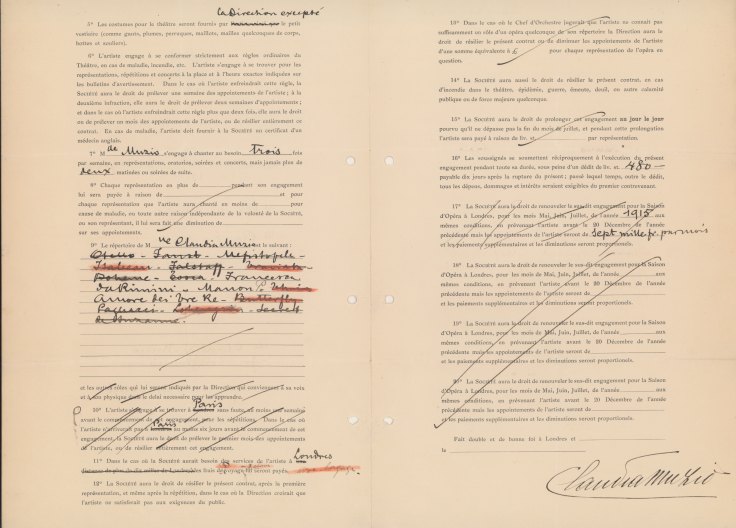 la Direction excepté
5° Les costumes pour le théâtre seront fournis par le petit
vestiaire (comme gants, plumes, perruques, maillots, mailles quelconques de corps,
bottes et souliers).
6° L'artiste engagé à se conformer strictement aux règles ordinaires du
Théâtre, en cas de maladie, incendie, etc. L'artiste s'engage à se trouver pour les
représentations, répétitions et concerts à la place et à l'heure exactes indiquées sur
les bulletins d'avertissement. Dans le cas où l'artiste enfreindrait cette règle, la
Société aura le droit de prélever une semaine des appointements de l'artiste ; à la
deuxième infraction, elle aura le droit de prélever deux semaines d'appointements ;
et dans le cas où l'artiste enfreindrait cette règle plus que deux fois, elle aura le droit
ou de prélever un mois des appointements de l'artiste, ou de résilier entièrement ce
contrat. En cas de maladie, l'artiste doit fournir à la Société un certificat d'un
médecin anglais.
7° M de Muzio s'engage à chanter au besoin trois fois
par semaine, en représentations, oratorios, soirées et concerts, mais jamais plus de
deux matinées ou soirées de suite.
8° Chaque représentation en plus de pendant son engagement
lui sera payée à raison de et pour
chaque représentation que l'artiste aura chanté en moins de pour
cause de maladie, ou toute autre raison indépendante de la volonté de la Société,
ou son représentant, il lui sera fait une diminution de
sur ses appointements.
9° Le répertoire de M lle Claudia Muzio est le suivant :
Otello - Faust - Mefistofele -
Isabeau - Falstaff - Traviata -
Boheme - Tosca Francesca
da Rimini - Manon
Amore dei Tre Re - Butterfly
Pagliacci - Lohengrin - Secret
de Suzanne.
et les autres rôles qui lui seront indiqués par la Direction qui conviennent à sa voix
et à son physique dans le délai nécessaire pour les apprendre.
Paris
10° L'artiste s'engage à se trouver à sans faute, au moins une semaine
avant le commencement de son engagement, pour les répétitions. Dans le cas où
l'artiste n'arriverait pas à Paris au moins six jours avant le commencement de cet
engagement, la Société aura le droit de prélever le premier mois des appointements
de l'artiste, ou de résilier entièrement cet engagement.
11° Dans le cas où la Société aurait besoin des services de l'artiste à Londres
distance de plus de dix milles de Londres, les frais de voyage lui seront payés.
12° La Société aura le droit de résilier le présent contrat, après la première
représentation, et même après la répétition, dans le cas où la Direction croirait que
l'artiste ne satisferait pas aux exigences du public.
13° Dans le cas où le Chef d'Orchestre jugerait que l'artiste ne connait pas
suffisamment un rôle d'un opéra quelconque de son répertoire la Direction aura le
droit de résilier le présent contrat ou de diminuer les appointements de l'artiste
d'une somme équivalente à £ pour chaque représentation de l'opéra en
question.
14° La Société aura aussi le droit de résilier le présent contrat, en cas
d'incendie dans le théâtre, épidémie, guerre, émeute, deuil, en autre calamité
publique ou de force majeure quelconque.
15° La Société aura le droit de prolonger cet engagement au jour le jour
pourvu qu'il ne dépasse pas la fin du mois de juillet, et pendant cette prolongation
l'artiste sera payé à raison de liv. st. par représentation.
16° Les soussignés se soumettent réciproquement à l'exécution du présent
engagement pendant toute sa durée, sous peine d'un dédit de liv. st. 480—
payable dix jours après la rupture du présent ; passé lequel temps, outre le dédit,
tous les dépens, dommages et intérêts seraient exigibles du premier contrevenant.
17° La Société aura le droit de renouveler le sus-dit engagement pour la Saison
d'Opéra à Londres, pour les mois Mai, Juin, Juillet, de l'année 1915 aux
mêmes conditions, en prévenant l'artiste avant le 20 Décembre de l'année
précédente mais les appointements de l'artiste seront de Sept mille fr. par mois
et les paiements supplémentaires et les diminutions seront proportionels.
18° La Société aura le droit de renouveler le sus-dit engagement pour la Saison
d'Opéra à Londres, pour les mois de Mai, Juin, Juillet, de l'année aux
mêmes conditions, en prévenant l'artiste avant le 20 Décembre de l'année
précédente mais les appointements de l'artiste seront de
et les paiements supplémentaires et les diminutions seront proportionels.
19° La Société aura le droit de renouveler le sus-dit engagement pour la Saison
d'Opéra à Londres, pour les mois de Mai, Juin, Juillet, de l'année aux
mêmes conditions, en prévenant l'artiste avant le 20 Décembre de l'année
précédente mais les appointements de l'artiste seront de
et les paiements supplémentaires et les diminutions seront proportionels.
20° La Société aura le droit de renouveler le sus-dit engagement pour la Saison
d'Opéra à Londres, pour les mois de Mai, Juin, Juillet, de l'année aux
mêmes conditions, en prévenant l'artiste avant le 20 Décembre de l'année
précédente mais les appointements de l'artiste seront de
et les paiements supplémentaires et les diminutions seront proportionels.
Fait double et de bonne foi à Londres et
le
Claudia Muzio